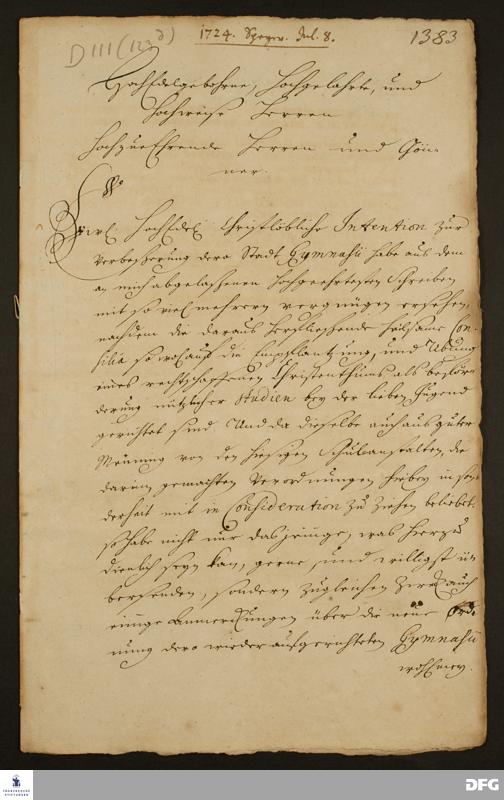 D III (123d)
1724. Speyer. Jul. 8.
1383
HochEdelgebohrne, Hochgelahrte, und
Hochweise Herren
Hochzuehrende Herren und Gön-
ner.
Ew. HochEdel Christlöbliche Intention zur
Verbeßerung dero Stadt Gymnasii habe aus dem
an mich abgelaßenen hochgeehrtesten Schreiben
mit so viel mehrern vergnügen ersehen,
nachdem die daraus herfließende heilsame Con-
silia so wol auf die Einpflantzung, und Übung
eines rechtschaffenen Christenthums als beförd-
derung nützlicher Studien bey der lieben Jugend
gerichtet sind Und da dieselbe auch aus guter
Meinung von den hiesigen Schulanstalten, die
darin gemachten Verordnungen hiebey in son-
derheit mit in Consideration zu ziehen beliebet,
so habe nicht nur dasjenige, was hierzu
dienlich seyn kan, gerne und willigst ü-
bersenden, sondern zugleichen auch
einige Anmerckungen über die neue Ord-
nung dero wieder aufgerichteten Gymnasii
wohlmey.
FRANCKESCHE
STIFTUNGEN
DFG